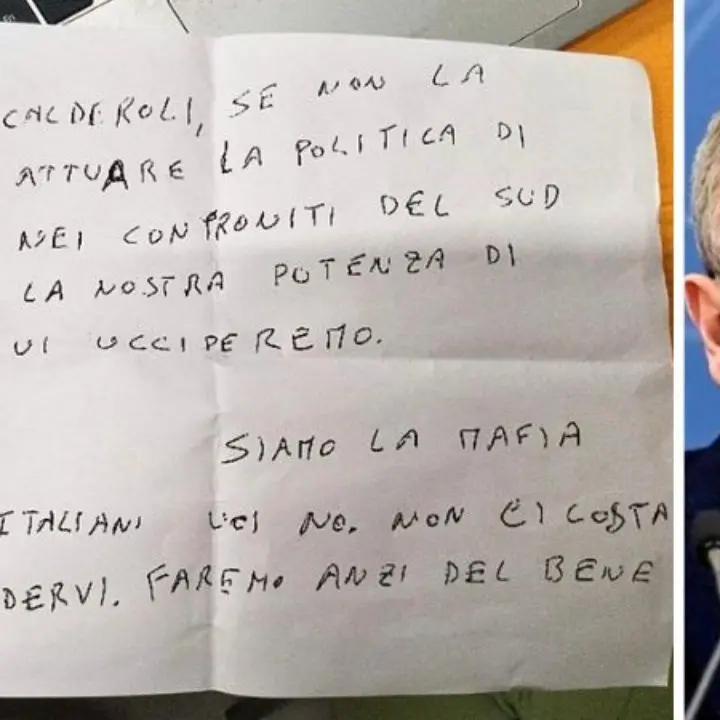 CALDEROLI, SE NON LA
ATTUARE LA POLITICA DI
NEI CONFRONITI DEL SUD
LA NOSTRA POTENZA DI
VI UCCIDEREMO.
SIAMO LA MAFIA
ITALIANI VOI NO. NON CI COSTA
DERVI. FAREMO ANZI DEL BENE